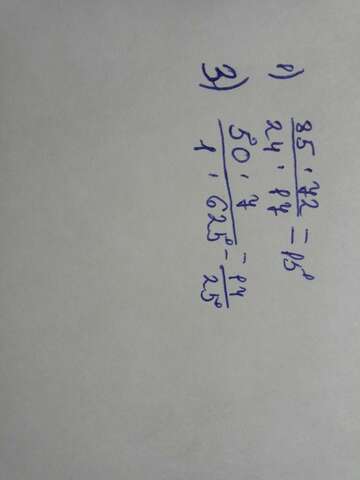 1) 85 · 72 / 24 · 17 = 15
3) 50 · 7 / 1 · 625 = 14 / 25